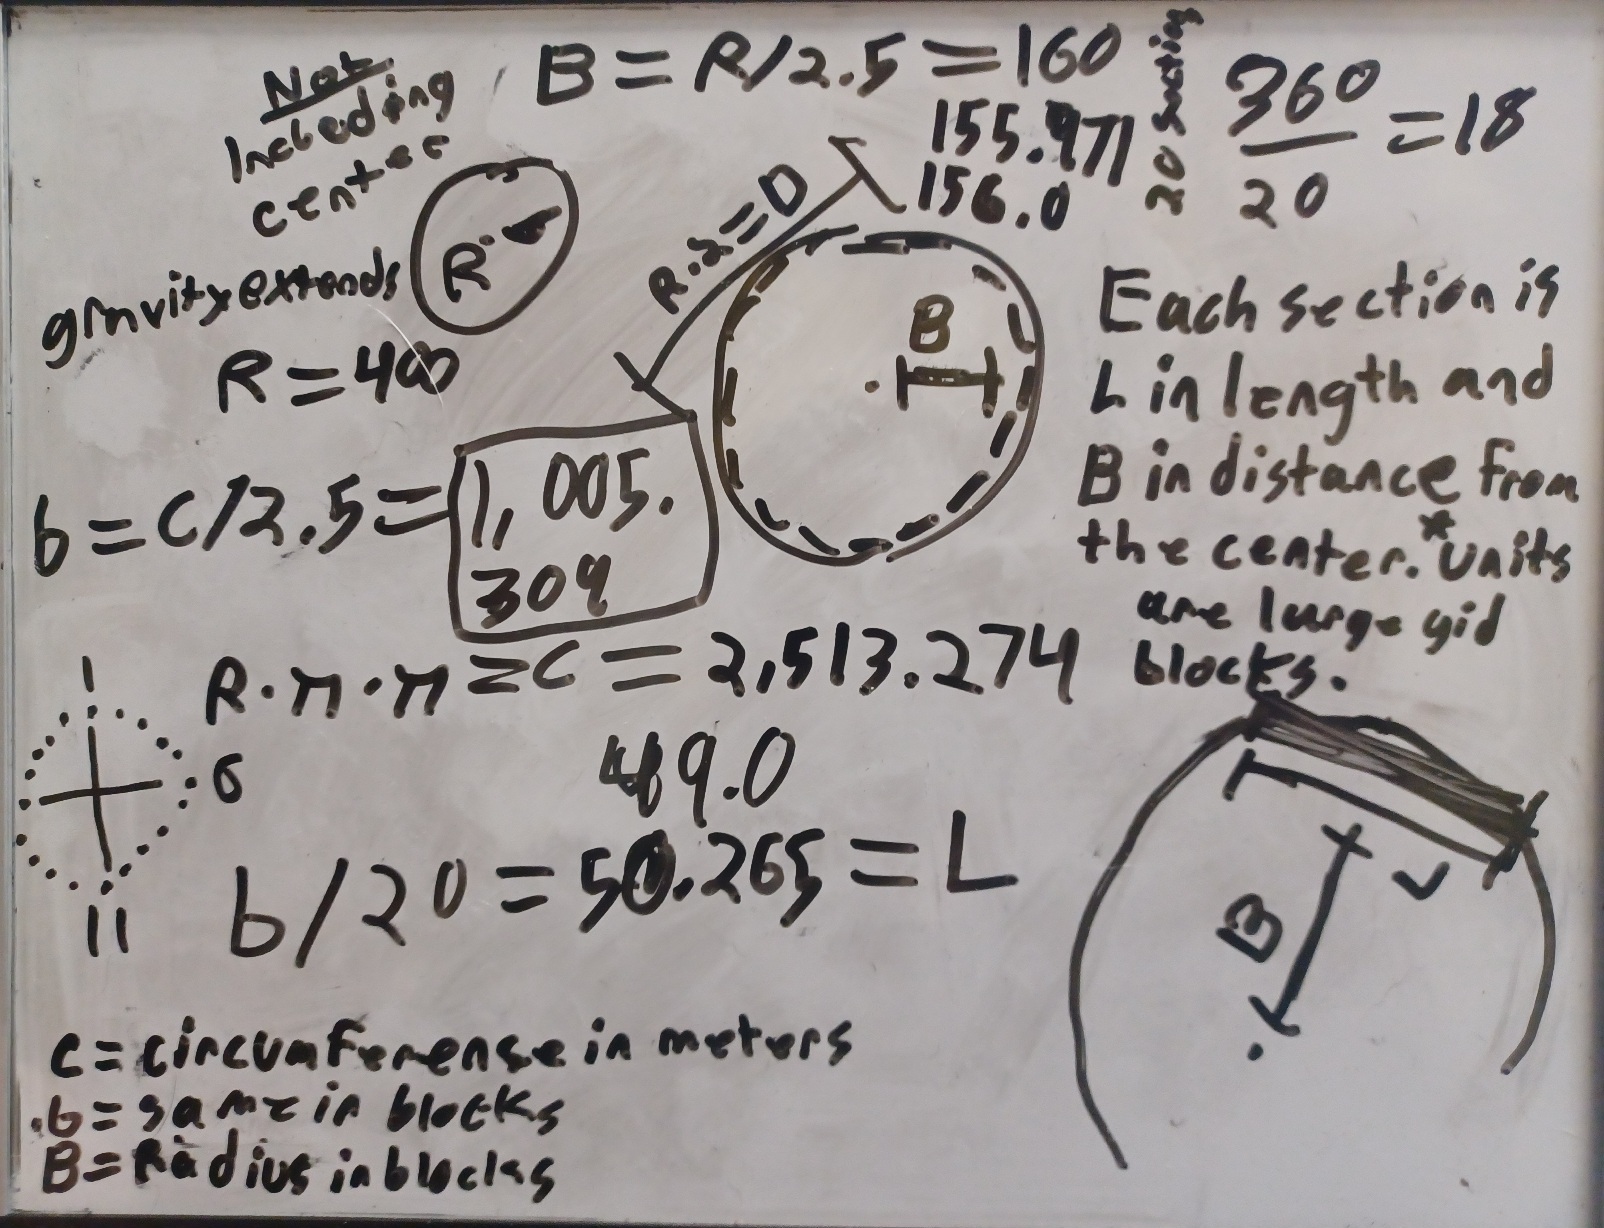 Not
Including
center
B = R/2.5 = 160
155.971
156.0
20 section
360
20
= 18
R
R·2=D
gravity extends
R = 400
B
Each section is
L in length and
B in distance from
the center. *units
are large gid
blocks.
b = C/2.5 = 1,005.
309
R·π·π = C = 2,513.274
1
6
11
49.0
b/20 = 50.265 = L
L
B
C = circumferense in meters
b = same in blocks
B = Radius in blocks